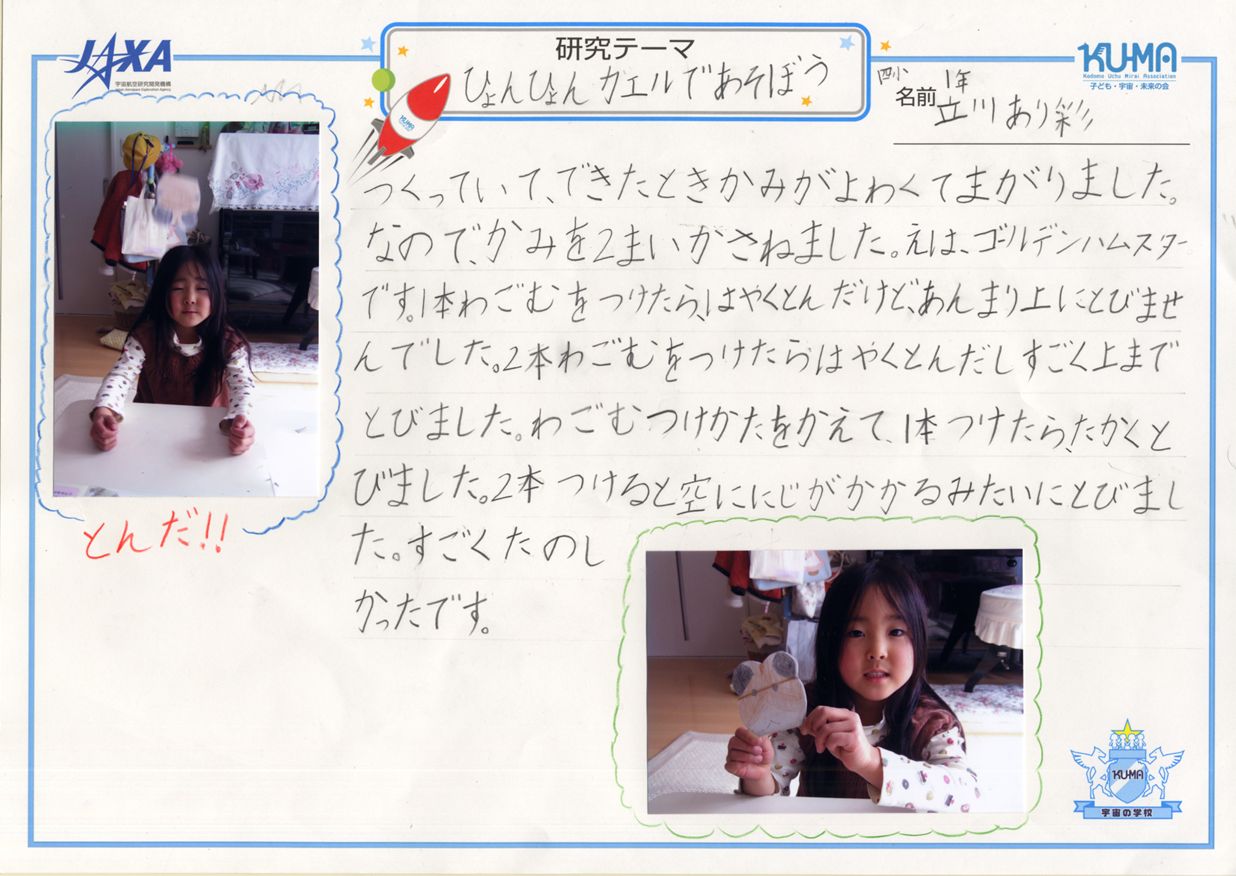 JAXA
宇宙航空研究開発機構
Japan Aerospace Exploration Agency
研究テーマ
ぴょんぴょんカエルであそぼう
KUMA
Kodomo Uchu Mirai Association
子ども・宇宙・未来の会
四小
1年
名前
立川あり彩
つくっていて、できたときかみがよわくてまがりました。
なので、かみを2まいかさねました。えは、ゴールデンハムスター
です。1本わごむをつけたら、はやくとんだけど、あんまり上にとびませ
んでした。2本わごむをつけたらはやくとんだしすごく上まで
とびました。わごむつけかたをかえて、1本つけたら、たかくと
びました。2本つけると空ににじがかかるみたいにとびまし
た。すごくたのし
かったです。
とんだ!!
KUMA
宇宙の学校